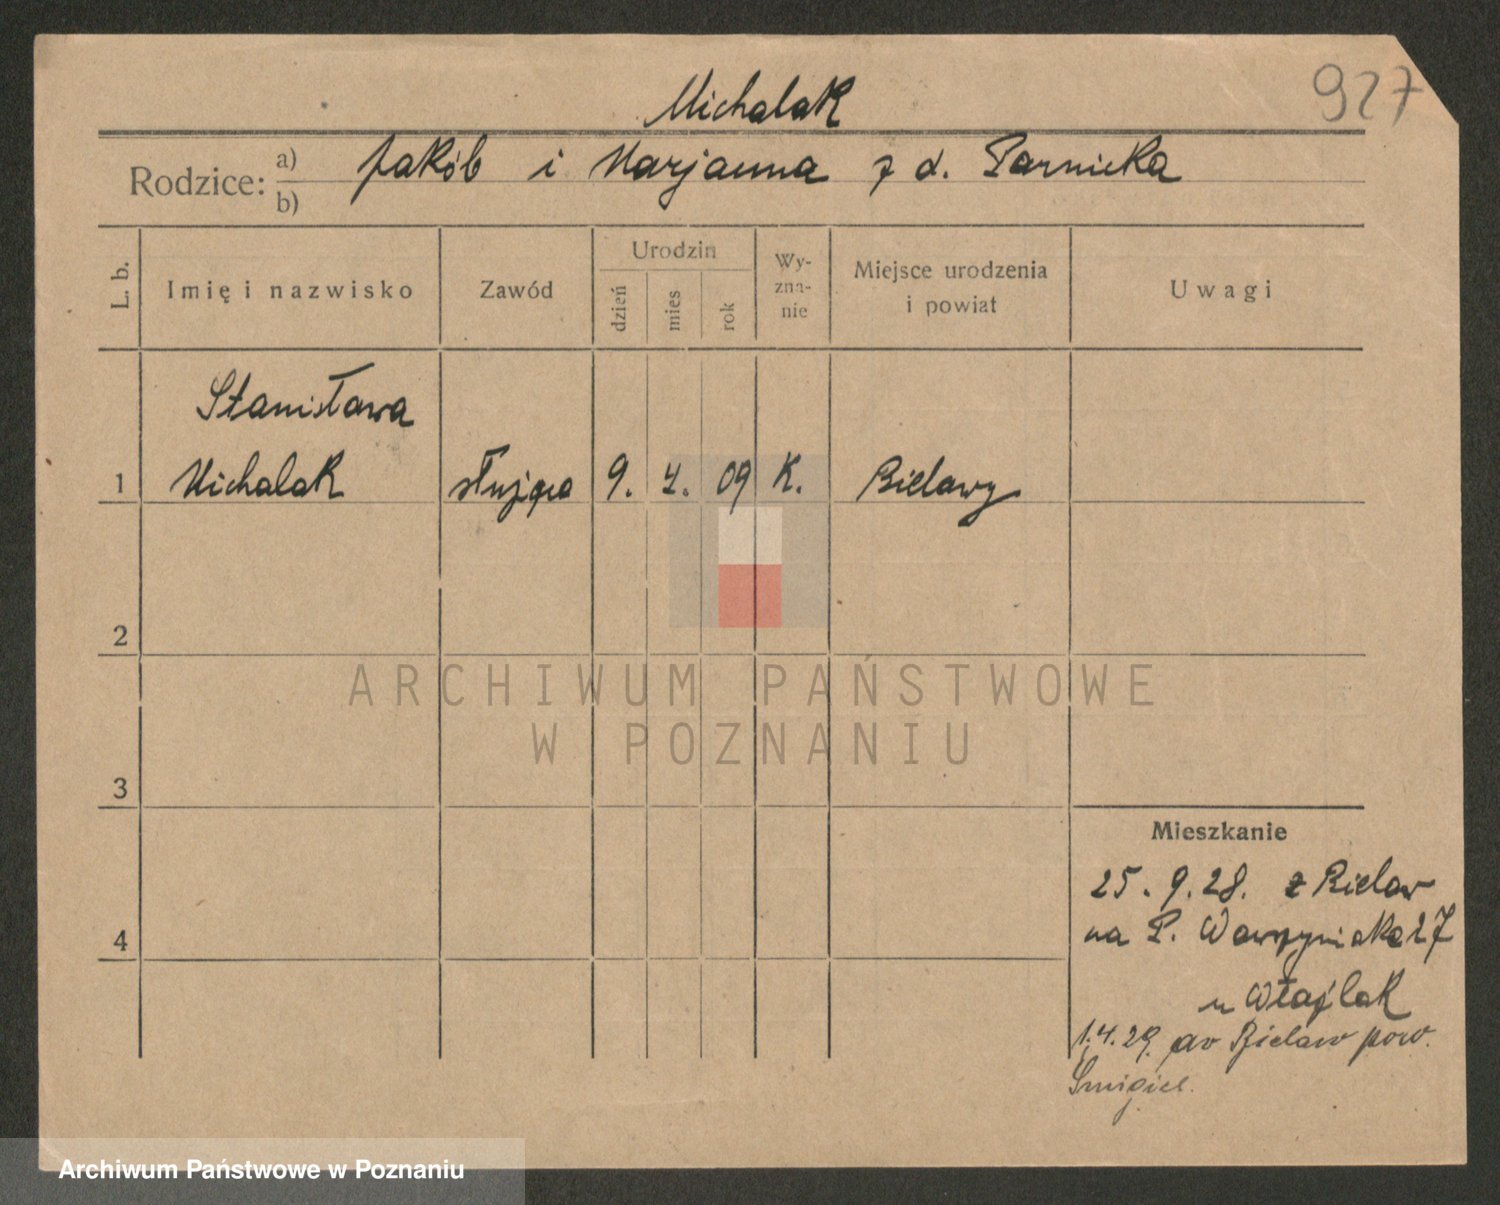 927
Michalak
Rodzice: a) Jakób i Marjanna z d. Parnicka
b)
L. b.
Imię i nazwisko
Zawód
Urodzin
dzień
mies
rok
Wy-
zna-
nie
Miejsce urodzenia
i powiat
Uwagi
Stanisława
1 Michalak służąca 9. 4. 09 K. Bielawy
2
3
4
Mieszkanie
25. 9. 28. z Bielaw
na P. Wawrzyniaka 27
u
1.4.29. do Bielaw pow.
Śmigiel.
ARCHIWUM PAŃSTWOWE
W POZNANIU
Archiwum Państwowe w Poznaniu